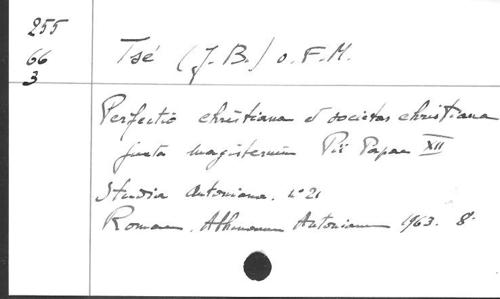 255
66
3
Tsé (J. B.) o. F. M.
Perfectio christiana et societas christiana
juxta magisterium Pii Papae XII
Studia Antoniana. n° 21
Romae. Athenaeum Antonianum 1963. 8°